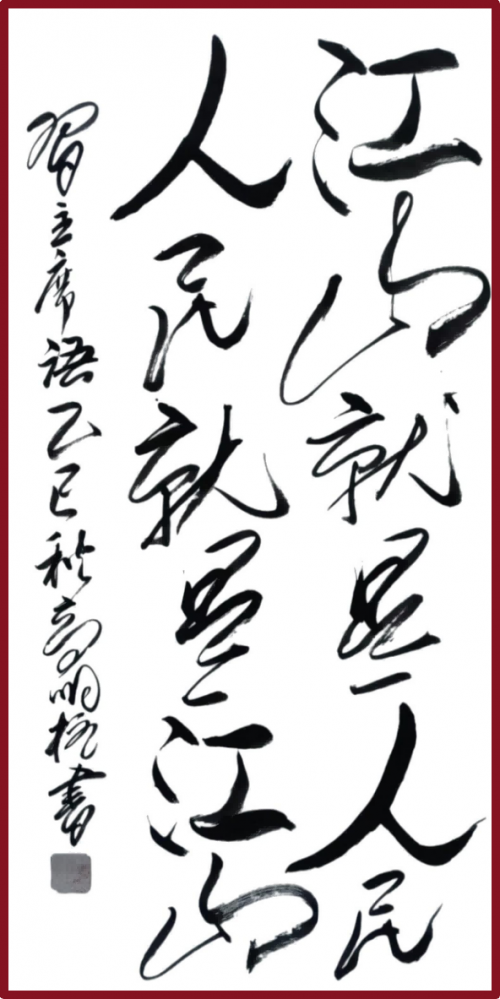 江山就是人民
人民就是江山
习主席语乙巳秋高明柱书